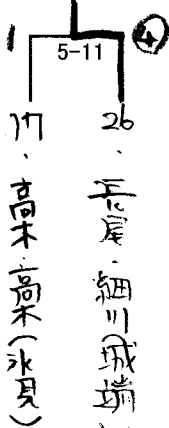 1
5-11
④
17
26
高木・高木(氷見)
長尾・細川(城端